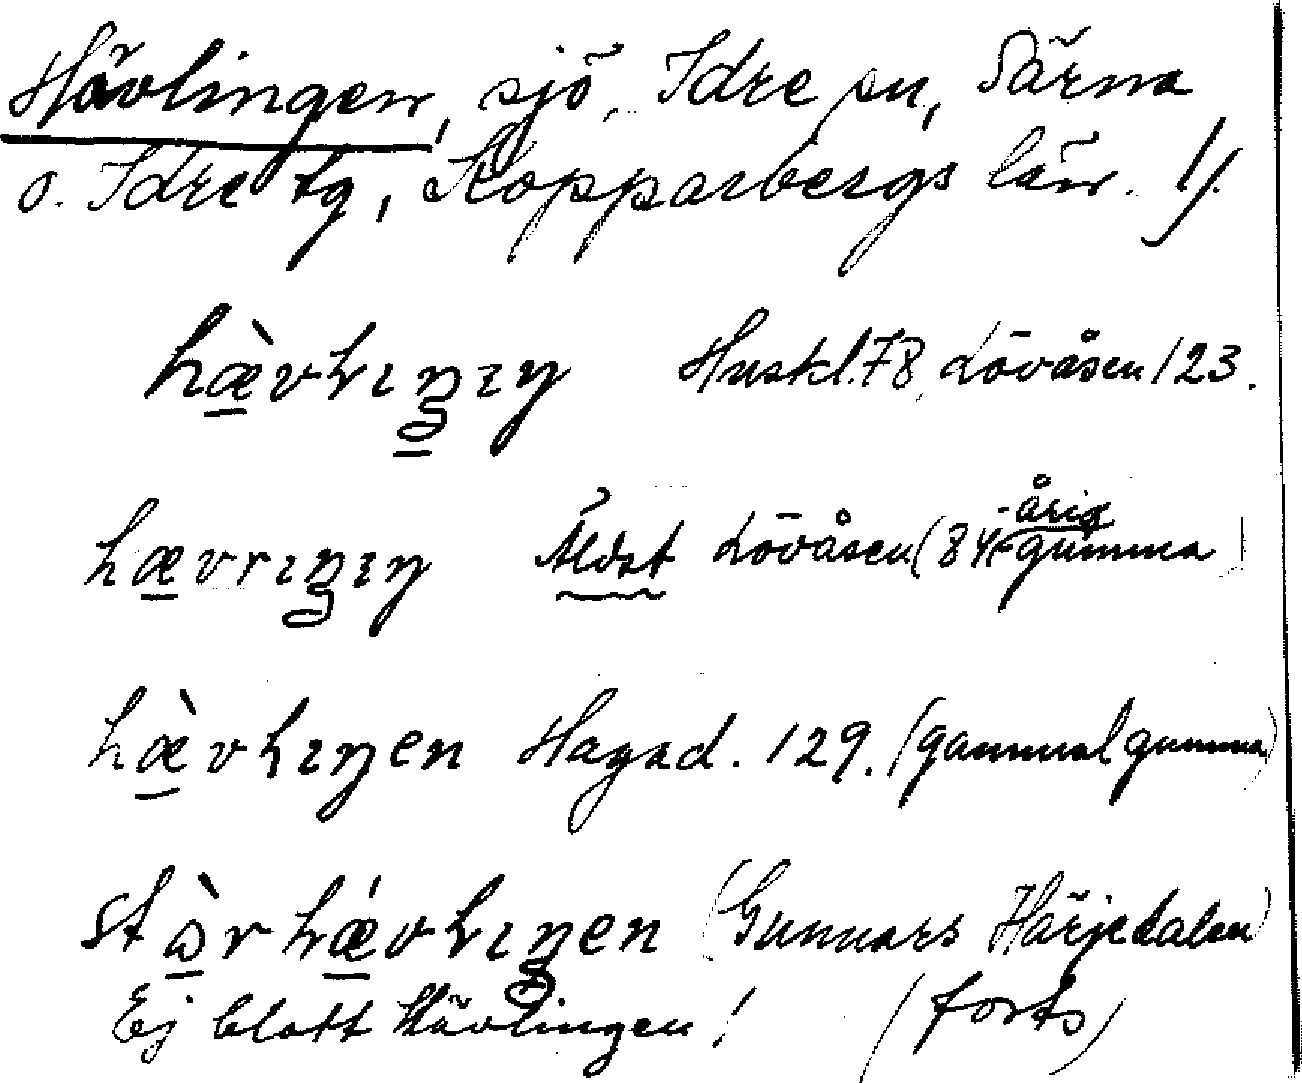 Hävlingen, sjö, Idre sn, Särna
o. Idre tg, Kopparbergs län. 1/.
hæ̀vlıŋıŋ Huskl. 78, Lövåsen 123.
hævrıŋıŋ Äldst Lövåsen (84-årig gumma)
hæ̀vlıŋen Hagad. 129. (gammal gumma)
stɷ̀rhǽvlıŋen (Gunnars Härjedalen)
Ej blott Hävlingen! (forts)